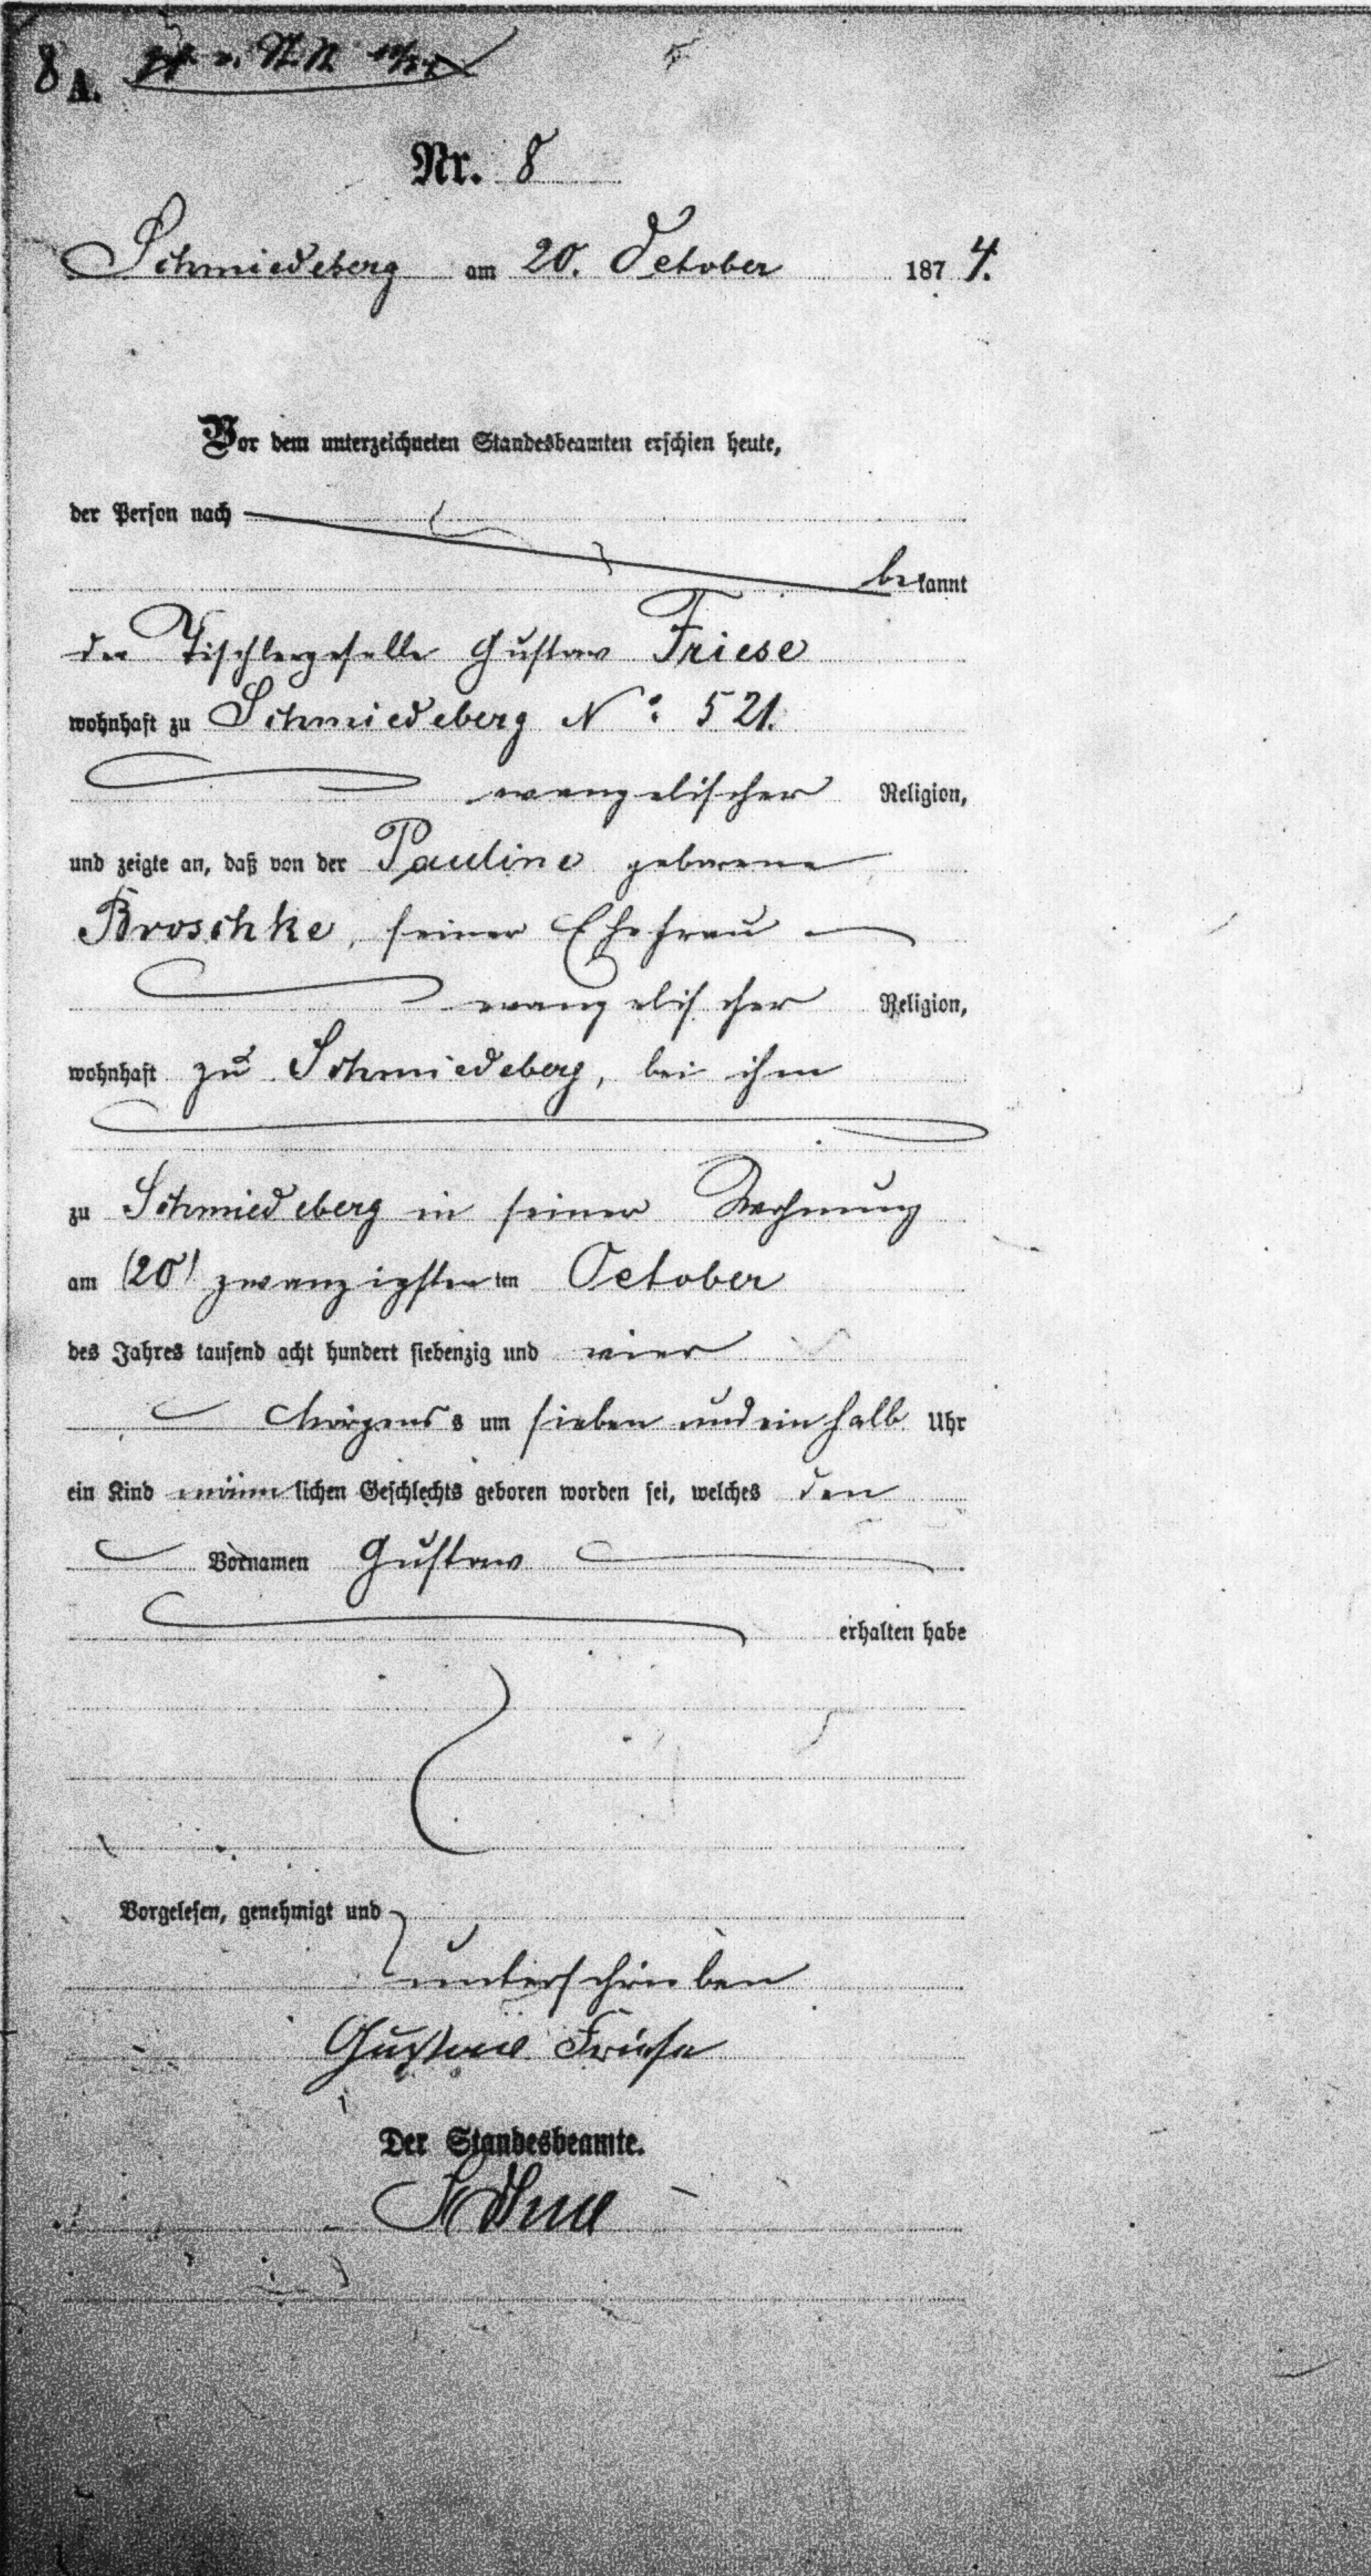 8 A.
Nr. 8
Schmiedeberg am 20. October 1874.
Vor dem unterzeichneten Standesbeamten erschien heute,
der Person nach
bekannt
der Tischlergeselle Gustav Friese
wohnhaft zu Schmiedeberg No: 521.
evangelischer Religion,
und zeigte an, daß von der Pauline geborene
Broschke, seiner Ehefrau
evangelischer Religion,
wohnhaft zu Schmiedeberg, bei ihm
zu Schmiedeberg in seiner Wohnung
am (20) zwanzigsten ten October
des Jahres tausend acht hundert siebenzig und vier
Morgens s um sieben und ein halb Uhr
ein Kind männlichen Geschlechts geboren worden sei, welches den
Vornamen Gustav
erhalten habe
Vorgelesen, genehmigt und
unterschrieben
Gustav Friese
Der Standesbeamte.